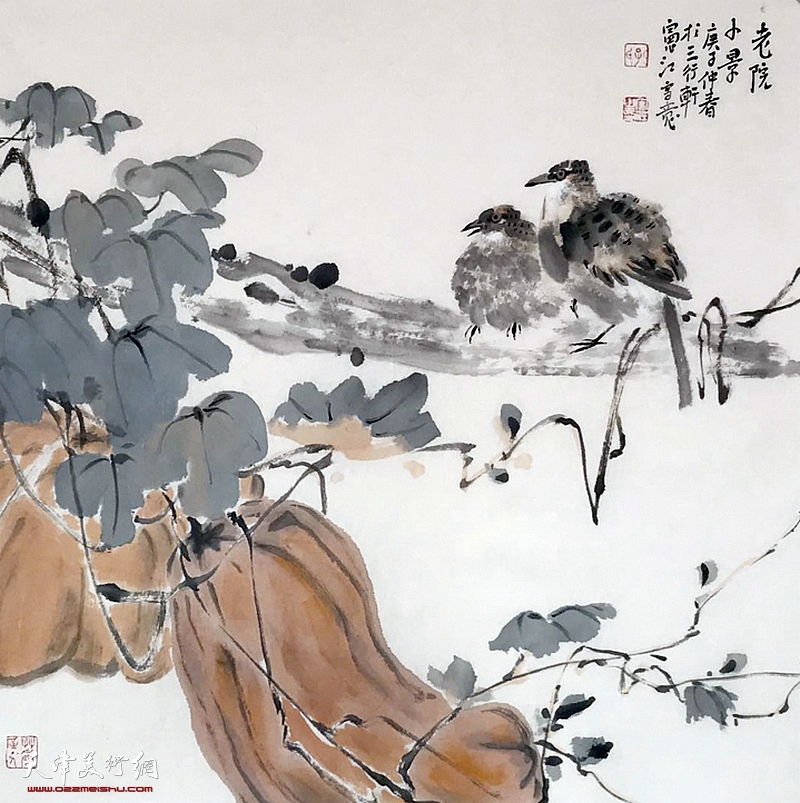 老院
小景
庚子仲春
於三行軒
富江雪竞
天津美術網
www.022meishu.com